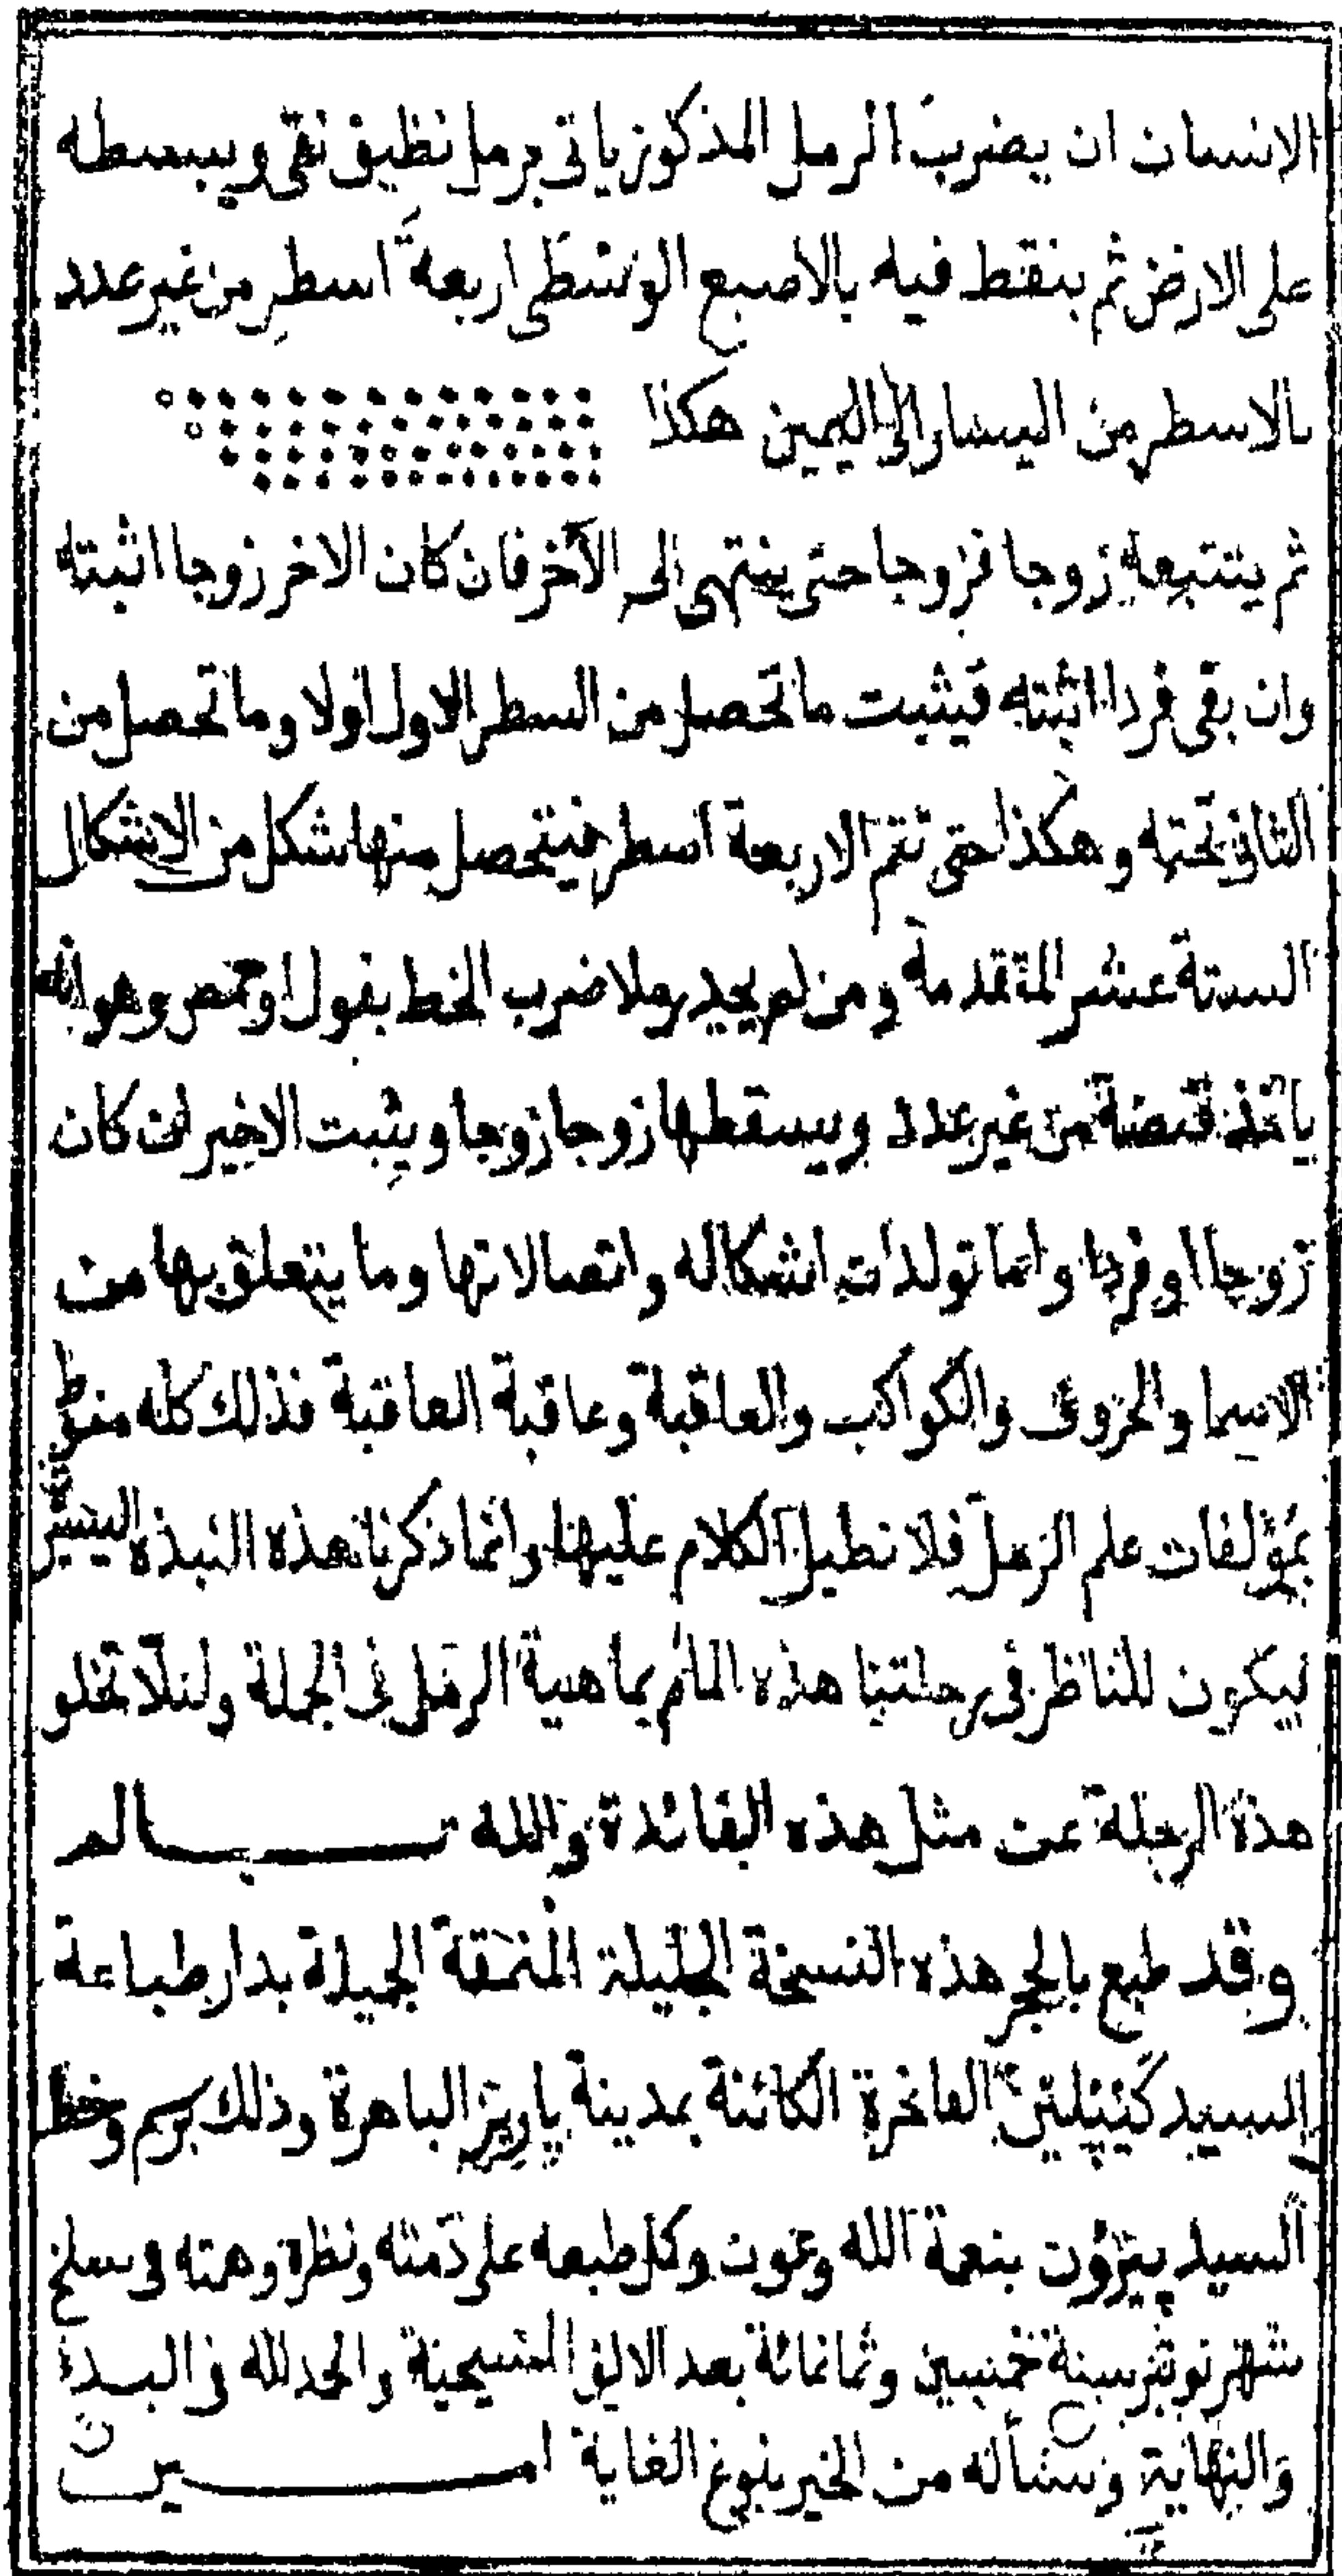 الانسان ان يضرب الرمل المذكور ياتى برمل نظيف نقى ويبسطه
على الارض ثم ينقط فيه بالاصبع الوسطى اربعة اسطر من غير عدد
بالاسطر من اليسار الى اليمين هكذا
ثم يتتبعه زوجا فزوجا حتى ينتهى الى الآخر فان كان الاخر زوجا اثبته
وان بقى فردا اثبته فيثبت ما تحصل من السطر الاول اولا وما تحصل من
الثانى تحته وهكذا حتى تتم الاربعة اسطر فيتحصل منها شكل من الاشكال
الستة عشر المتقدمة ومن لم يجد رملا ضرب الخط بفول او حمص وهو انه
ياخذ قبضة من غير عدد ويسقطها زوجا زوجا ويثبت الاخير ان كان
زوجا او فردا واما تولدات اشكاله واتصالاتها وما يتعلق بها من
الاسما والحروف والكواكب والعاقبة وعاقبة العاقبة فذلك كله منوط
بمؤلفات علم الرمل فلا نطيل الكلام عليها وانما ذكرنا هذه النبذة اليسيرة
ليكون للناظر فى رحلتنا هذه المام بماهية الرمل فى الجملة ولئلا تخلو
هذه الرحلة عن مثل هذه الفائدة والله
وقد طبع بالحجر هذه النسخة الجليلة المنمقة الجميلة بدار طباعة
السيد كَيْپلِين الفاخرة الكائنة بمدينة پاريز الباهرة وذلك برسم وخط
السيد پيرون بنعمة الله وعون وكل طبعه على ذمته ونظره وهمته فى سلخ
شهر نونبر سنة خمسين وثمانمائة بعد الالف المسيحية والحمد لله فى البدء
والنهاية ونسأله من الخير بلوغ الغاية امــــين